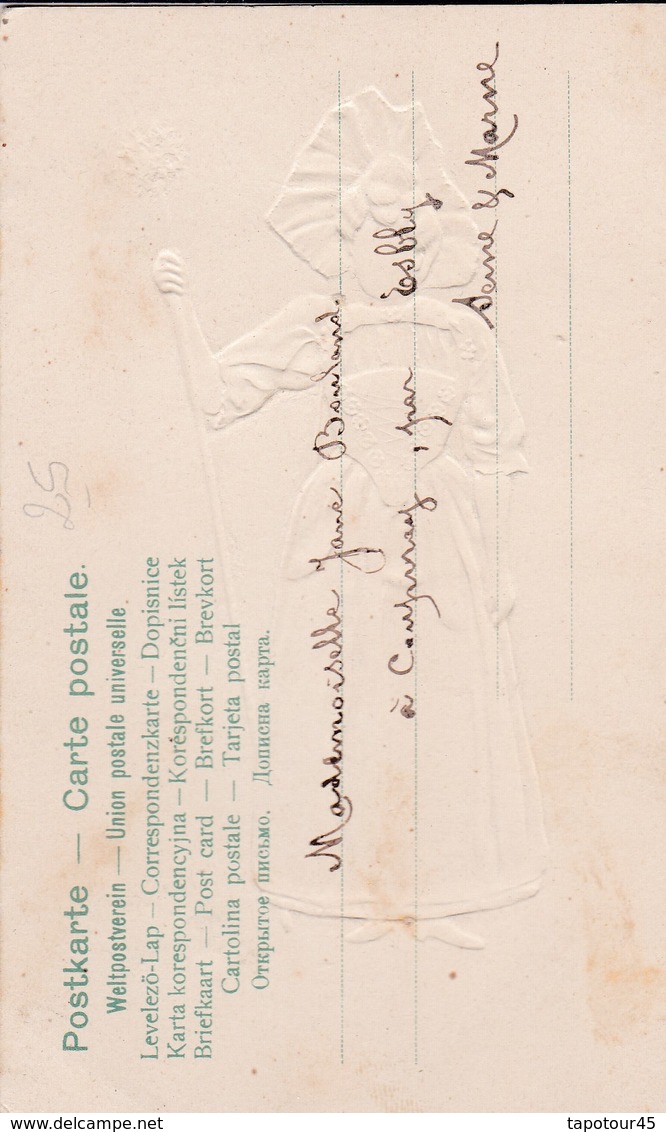 Postkarte — Carte postale.
Weltpostverein — Union postale universelle
Levelezö-Lap — Correspondenzkarte — Dopisnice
Karta korespondencyjna — Korespondenční lístek
Briefkaart — Post card — Brefkort — Brevkort
Cartolina postale — Tarjeta postal
Открытое письмо. Дописна карта.
25
Mademoiselle Jane
à Coupvray, par Esbly
Seine & Marne
delcampe.net
tapotour45